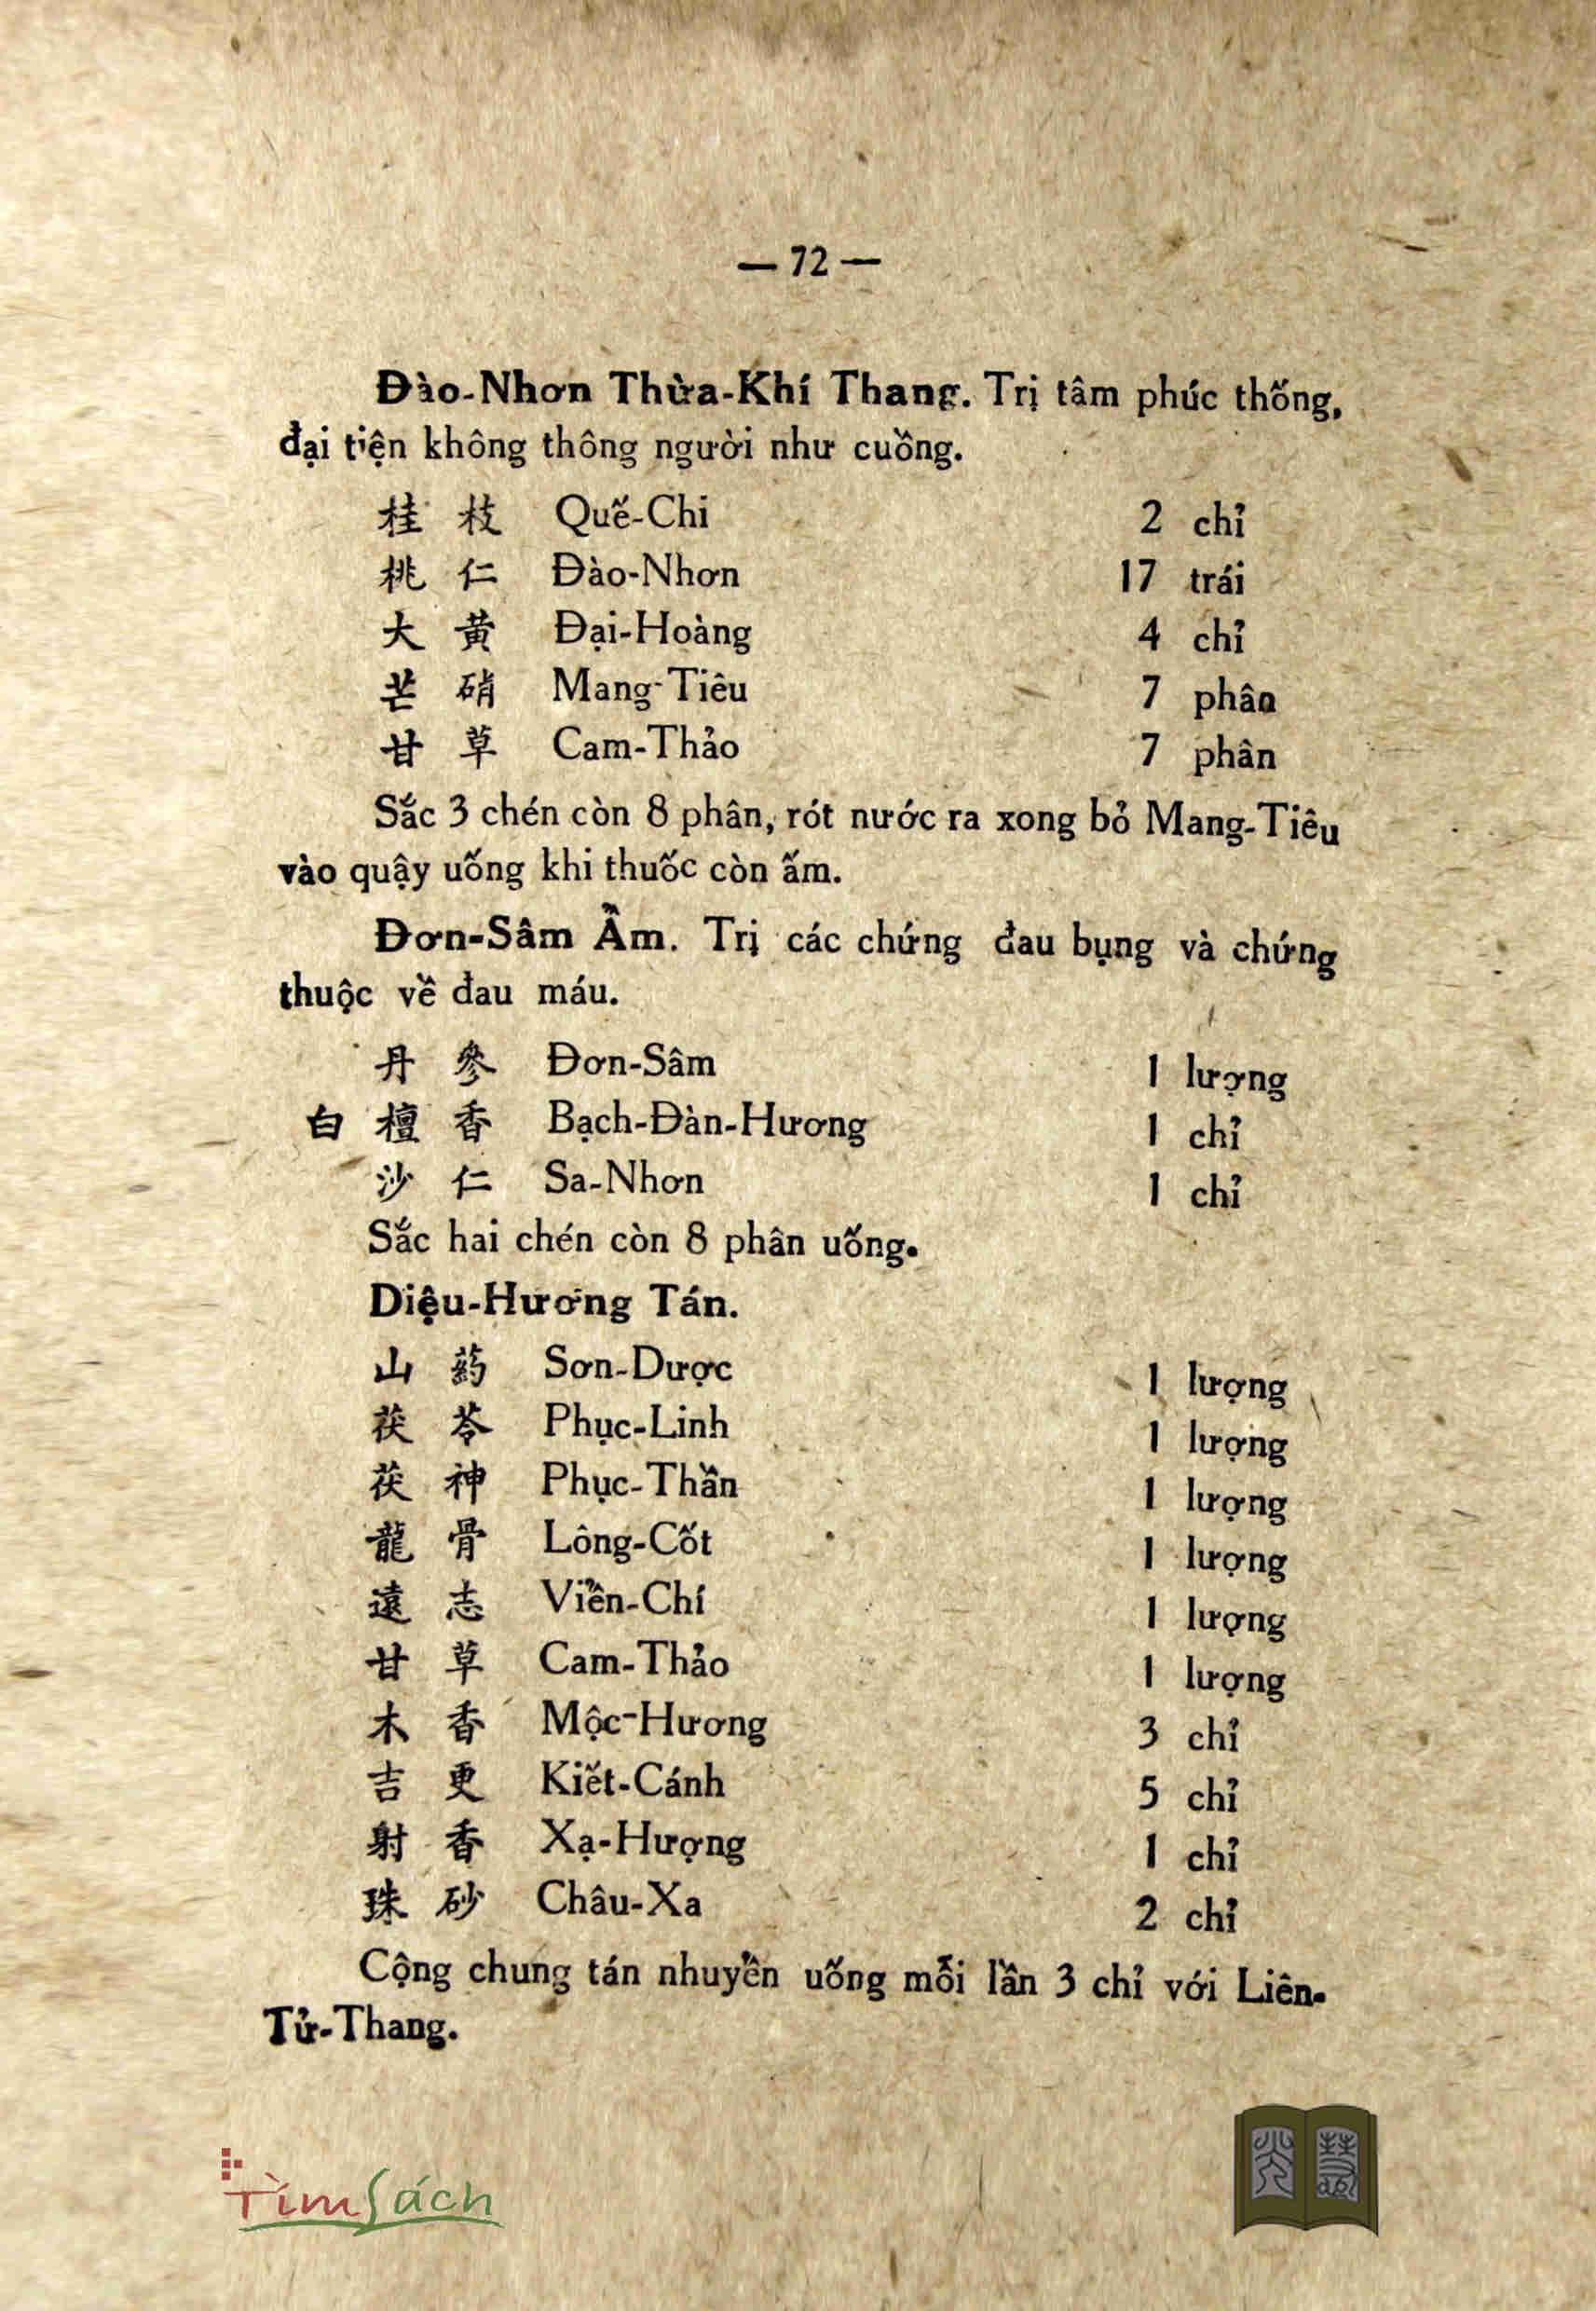 — 72 —
Đào-Nhơn Thừa-Khí Thang. Trị tâm phúc thống,
đại tiện không thông người như cuồng.
桂 枝 Quế-Chi 2 chỉ
桃 仁 Đào-Nhơn 17 trái
大 黄 Đại-Hoàng 4 chỉ
芒 硝 Mang-Tiêu 7 phân
甘 草 Cam-Thảo 7 phân
Sắc 3 chén còn 8 phân, rót nước ra xong bỏ Mang-Tiêu
vào quậy uống khi thuốc còn ấm.
Đơn-Sâm Ẩm. Trị các chứng đau bụng và chứng
thuộc về đau máu.
丹 參 Đơn-Sâm 1 lượng
白 檀 香 Bạch-Đàn-Hương 1 chỉ
沙 仁 Sa-Nhơn 1 chỉ
Sắc hai chén còn 8 phân uống.
Diệu-Hương Tán.
山 药 Sơn-Dược 1 lượng
茯 苓 Phục-Linh 1 lượng
茯 神 Phục-Thần 1 lượng
龍 骨 Lông-Cốt 1 lượng
遠 志 Viền-Chí 1 lượng
甘 草 Cam-Thảo 1 lượng
木 香 Mộc-Hương 3 chỉ
吉 更 Kiết-Cánh 5 chỉ
射 香 Xạ-Hượng 1 chỉ
珠 砂 Châu-Xa 2 chỉ
Cộng chung tán nhuyền uống mỗi lần 3 chỉ với Liên-
Tử-Thang.
TìmSách